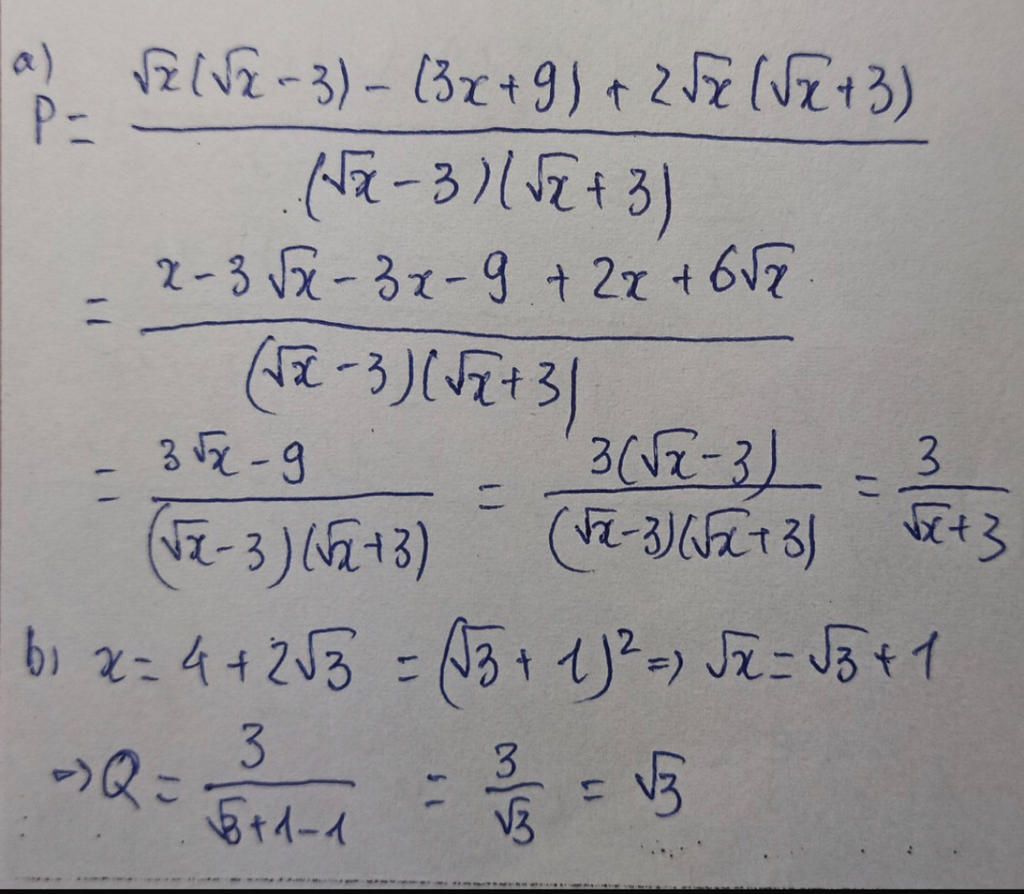 a)
P = (√x(√x - 3) - (3x + 9) + 2√x(√x + 3)) / ((√x - 3)(√x + 3))
= (x - 3√x - 3x - 9 + 2x + 6√x) / ((√x - 3)(√x + 3))
= (3√x - 9) / ((√x - 3)(√x + 3)) = (3(√x - 3)) / ((√x - 3)(√x + 3)) = 3 / (√x + 3)
b) x = 4 + 2√3 = (√3 + 1)² => √x = √3 + 1
=> Q = 3 / (√3 + 1 - 1) = 3 / √3 = √3